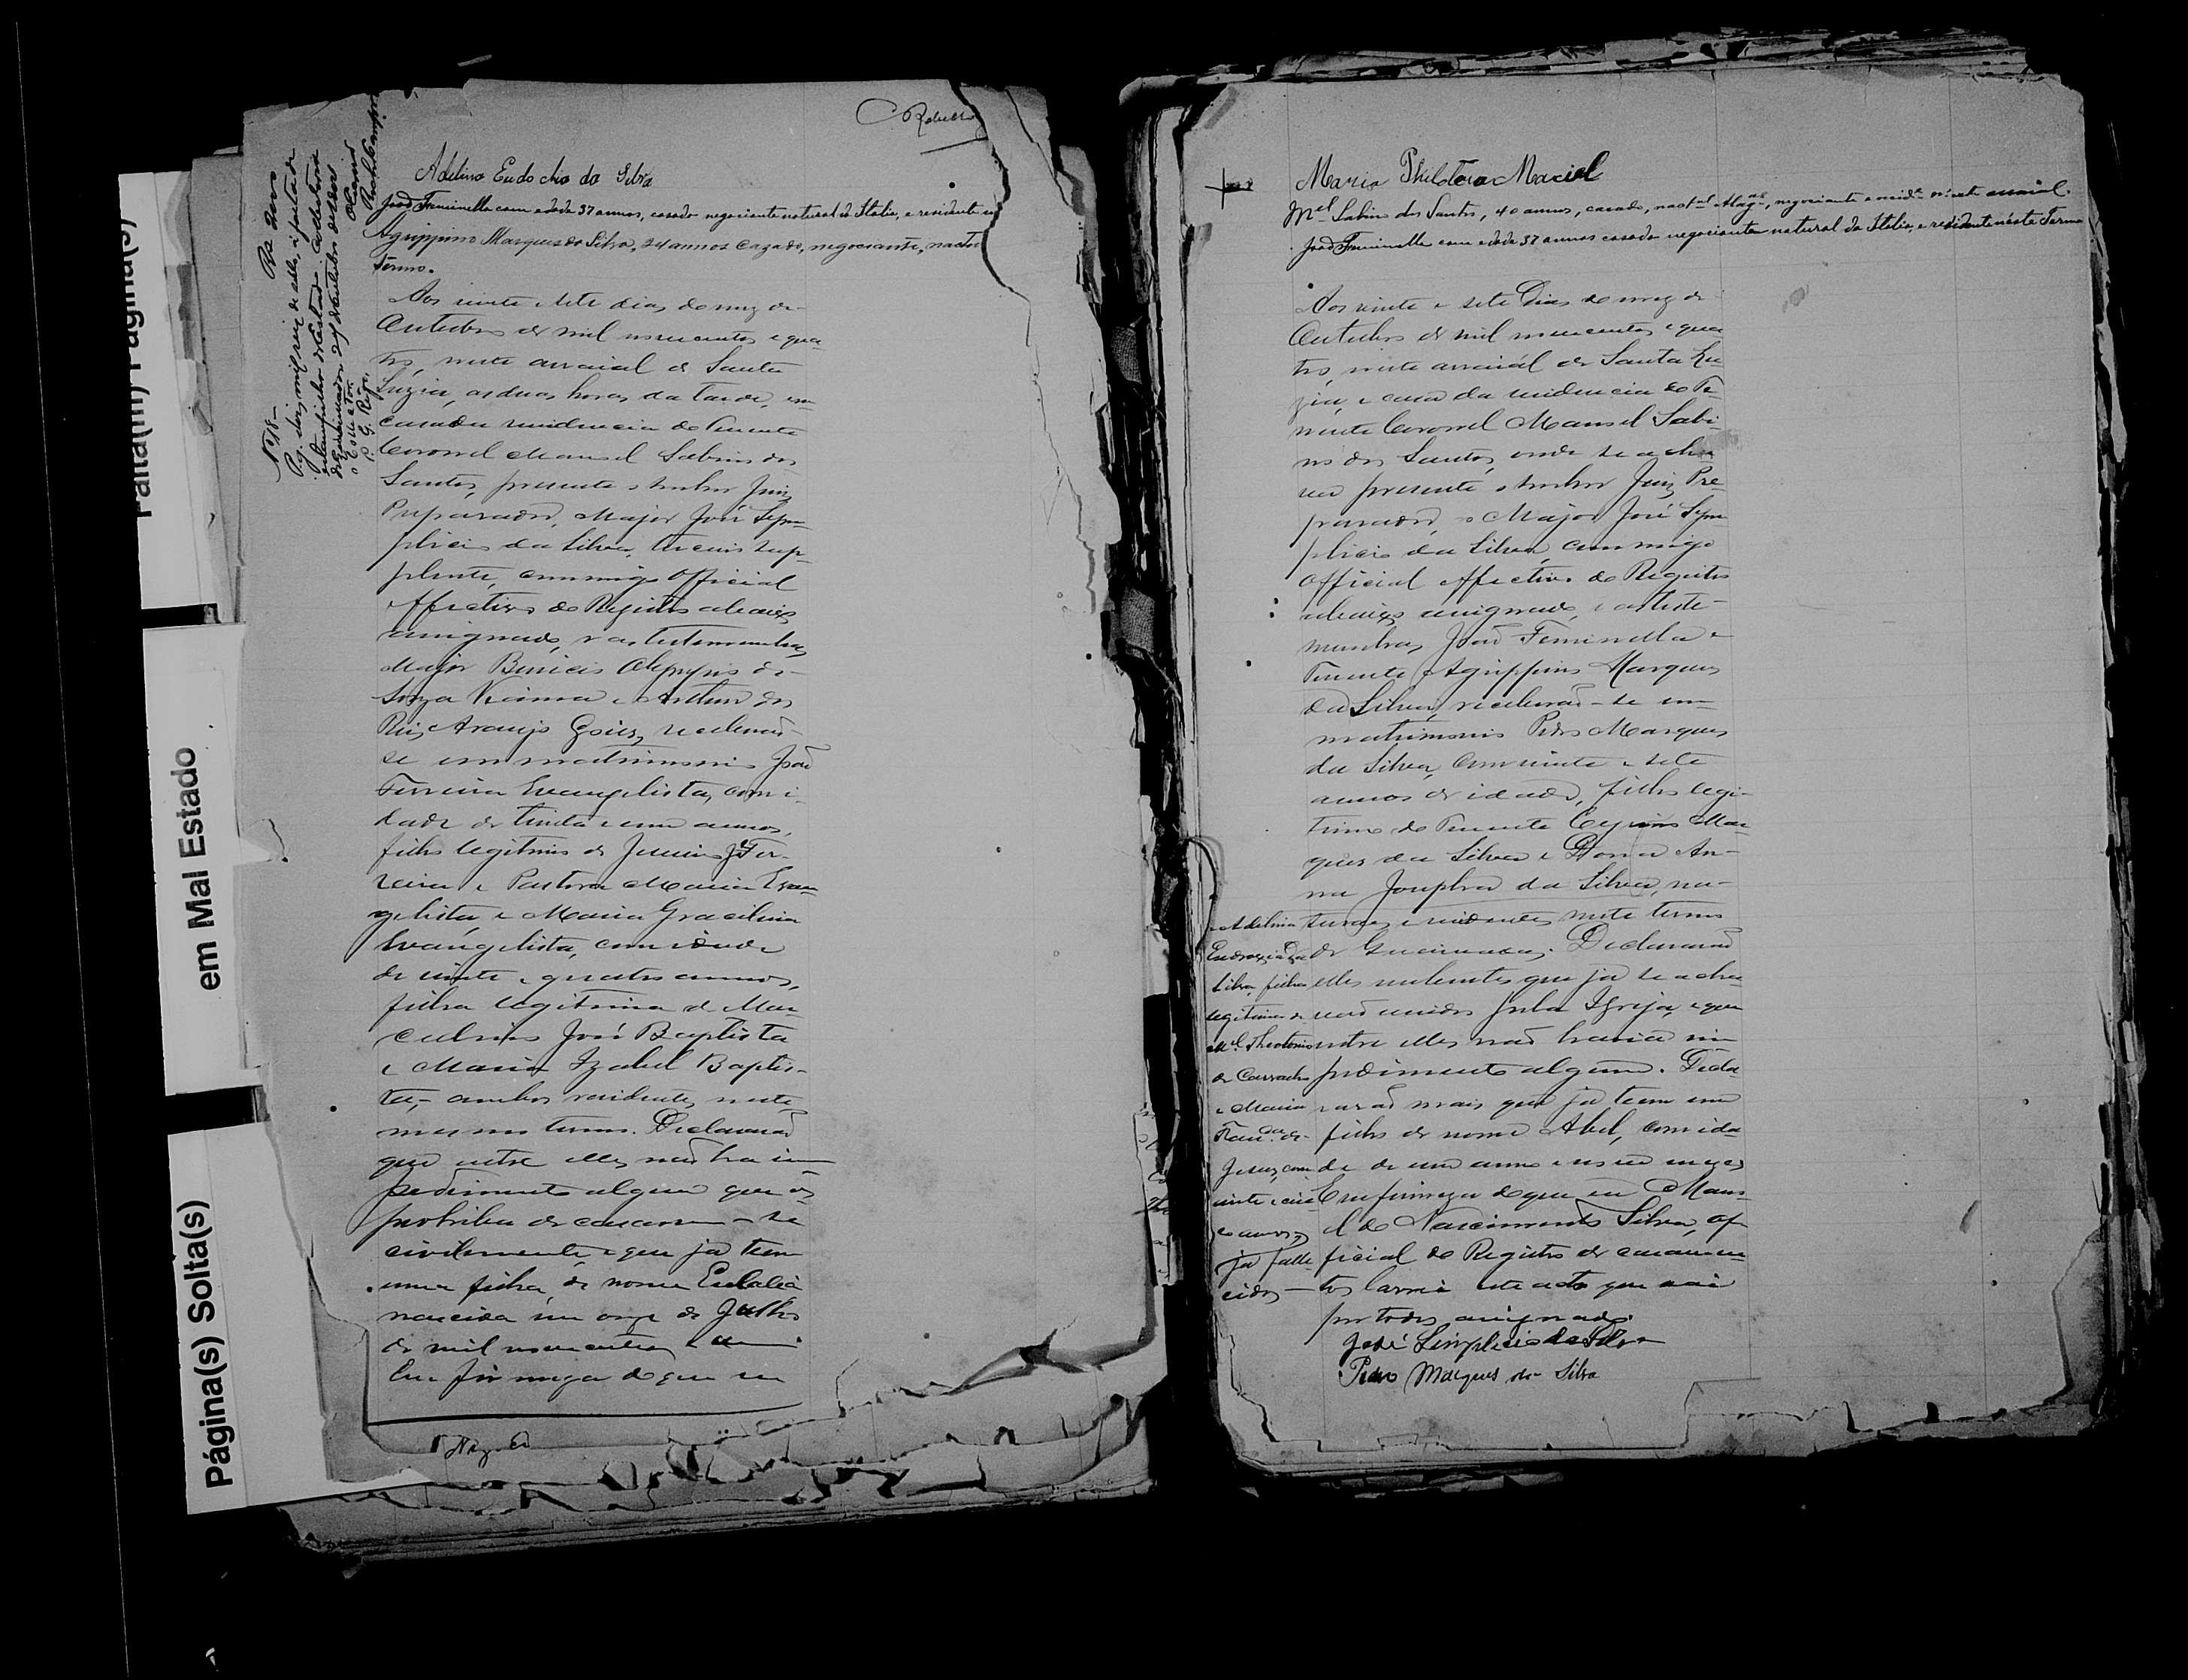 Falta(m) Página(s)
em Mal Estado
Página(s) Solta(s)
Nº 18 - Rs 2000
Pg. dois mil reis de sello, á falta de
estampilha do Estado. Collectoria
Collector
P. G. Rêgo
Adelina Eudochia da Silva
João Fiminella com edade 37 annos, casado negociante natural da Italia, e residente
Agrippino Marques da Silva, 24 annos cazado, negociante,
termo.
Aos vinte e sete dias do mez de
Outubro de mil novecentos e qua-
tro, neste arraial de Santa
Luzia, as duas horas da tarde, em
casa da residencia do Tenente
Coronel Manoel Sabino dos
Santos, presente o senhor Juiz
Preparador, Major José Sym-
plicio da Silva, terceiro sup-
plente, commigo Official
effectivo do Registro abaixo
assignado, e as testemunhas
Major Benicio Olympio de
Souza Vianna e Arthur dos
Reis Araujo Goes, receberão-
se em matrimonio João
Ferreira Evangelista, com i-
dade de trinta e um annos,
filho legitimo de Jesuino Fer-
reira e Pastora Maria Evan-
gelista, e Maria Gracilina
Evangelista, com idade
de vinte e quatro annos,
filha legitima de Mar-
culino José Baptista
e Maria Izabel Baptis-
ta, ambos residentes neste
mesmo termo. Declararão
que entre elles não ha im-
pedimento algum que os
prohiba de casarem-se
civilmente, e que ja tem
uma filha, de nome Eulalia
nascida em onze de Julho
de mil novecentos e um
Em firmeza do que eu
Maria Philotera Maciel
Mel Sabino dos Santos, 40 annos, casado, negociante e residte neste arraial.
João Fiminella com edade 37 annos casado negociante natural da Italia, e residente néste Termo
Aos vinte e sete Dias do mez de
Outubro de mil novecentos e qua-
tro, neste arraial de Santa Lu-
zia, e casa da residencia do Te-
nente Coronel Manoel Sabi-
no dos Santos, onde se acha-
va presente o senhor Juiz Pre-
parador, o Major José Sym-
plicio da Silva, commigo
Official effectivo do Registro
abaixo assignado, e as teste-
munhas João Fiminella e
Tenente Agrippino Marques
da Silva, receberão-se em
matrimonio Pedro Marques
da Silva, com vinte e sete
annos de idade, filho legi-
timo do Tenente Cyrino Mar-
ques da Silva e Dona An-
na Josepha da Silva, na-
turaes e residentes neste termo
de Declararão
elles nubentes que ja se acha-
vão unidos pela Igreja, e que
entre elles não havia im-
pedimento algum. Decla-
rarão mais que ja teem um
filho de nome Abel, com ida-
de de um anno e nove mezes
Em firmeza do que eu Mano-
el do Nascimento Silva, of-
ficial do Registro de casamen-
tos lavrei este acto que vai
por todos assignado.
Adelina
Eudoxia da
Silva, filha
legitima de
Mel Theotonio
de Carvalho
e Maria
Franca de
Jesus, com
vinte e cin-
co annos,
ja falle-
cidos
José Simplicio da Silva
Pedro Marques da Silva